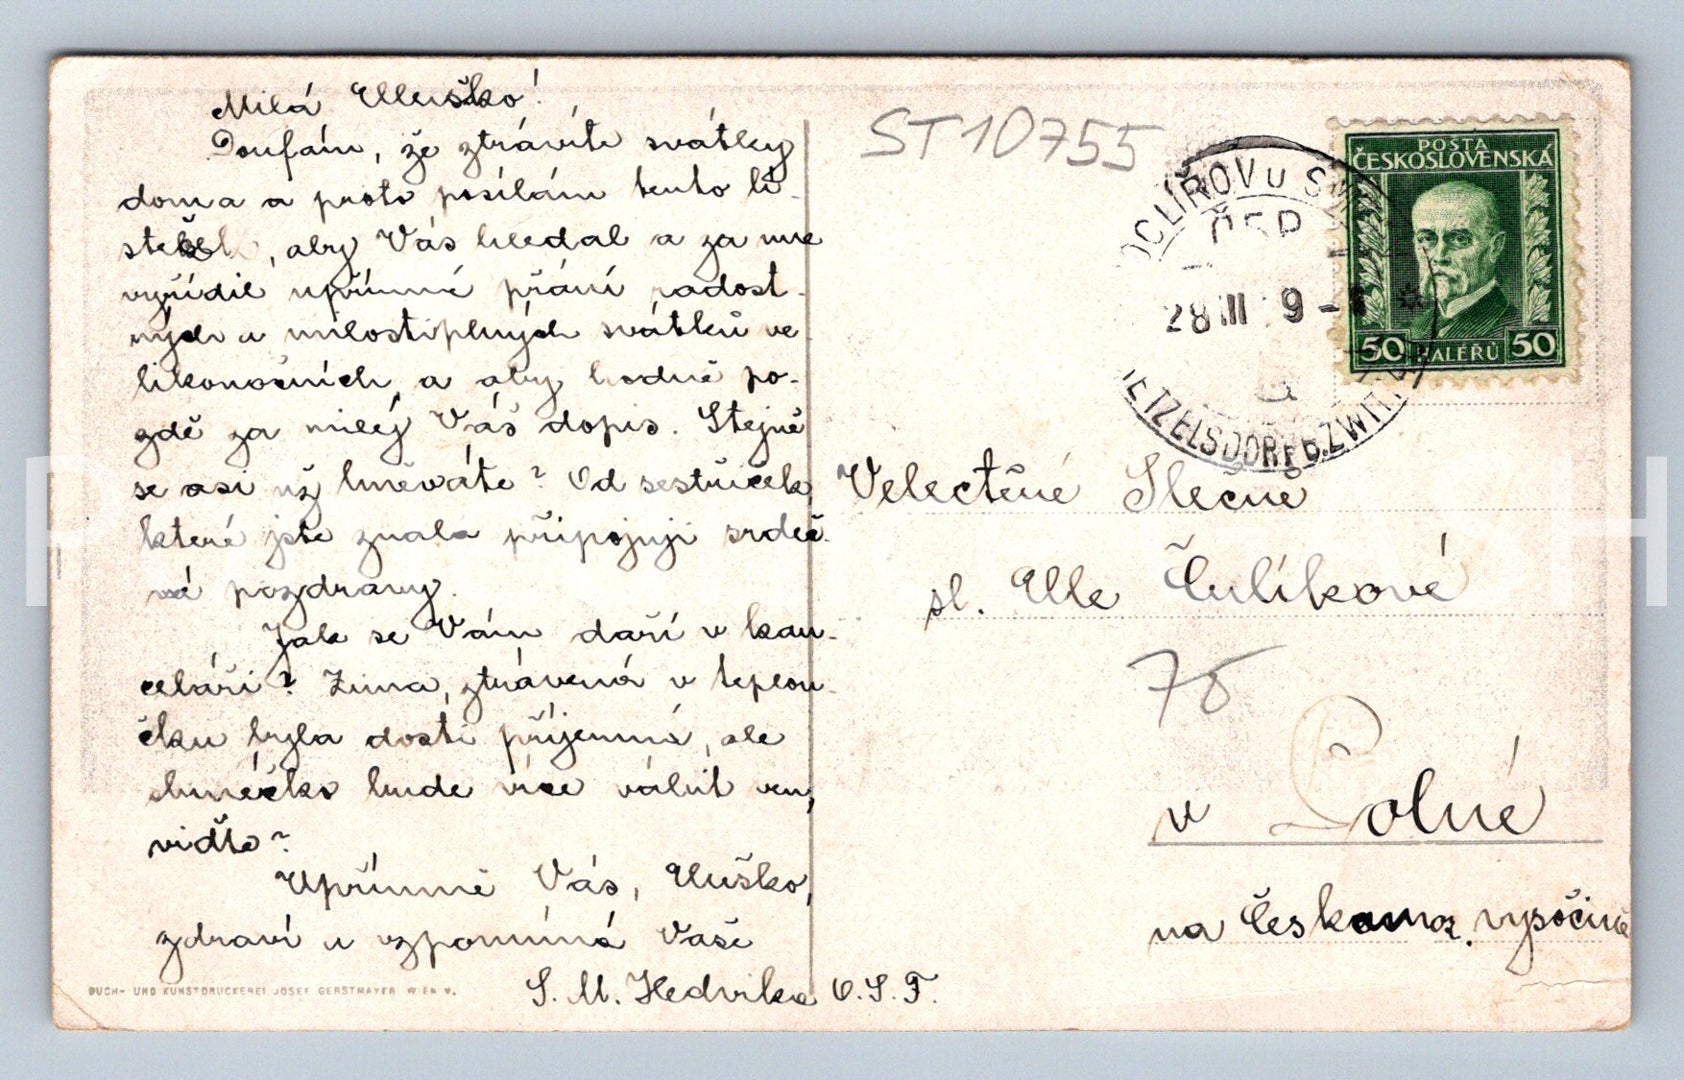 Milá Elluško!
Doufám, že ztrávíte svátky
doma a proto posílám tento lí-
steček, aby Vás hledal a za mne
vyřídil upřímné přání radost-
ných a milostiplných svátků ve-
likonočních, a aby hodně po-
zdě za milý Váš dopis. Stejně
se asi už hněváte? Od sestřiček,
které jste znala připojuji srdeč-
né pozdravy.
Jak se Vám daří v kan-
celáři? Zima, ztrávená v teplou-
čku byla dosti příjemná, ale
sluníčko bude více vábit ven,
viďte?
Upřímně Vás, Eluško,
zdraví a vzpomíná Vaše
S. M. Hedvika O.S.F.
BUCH- UND KUNSTDRUCKEREI JOSEF GERSTMAYER WIEN V.
ST10755
POŠTA
ČESKOSLOVENSKÁ
50 HALÉŘŮ 50
OCLÍROV u SV
ČSR
28.III 9-
ETZELSDORF b. ZWITT
Velectěné Slečně
sl. Elle Čulíkové
78
v Polné
na Českomor. vysočině